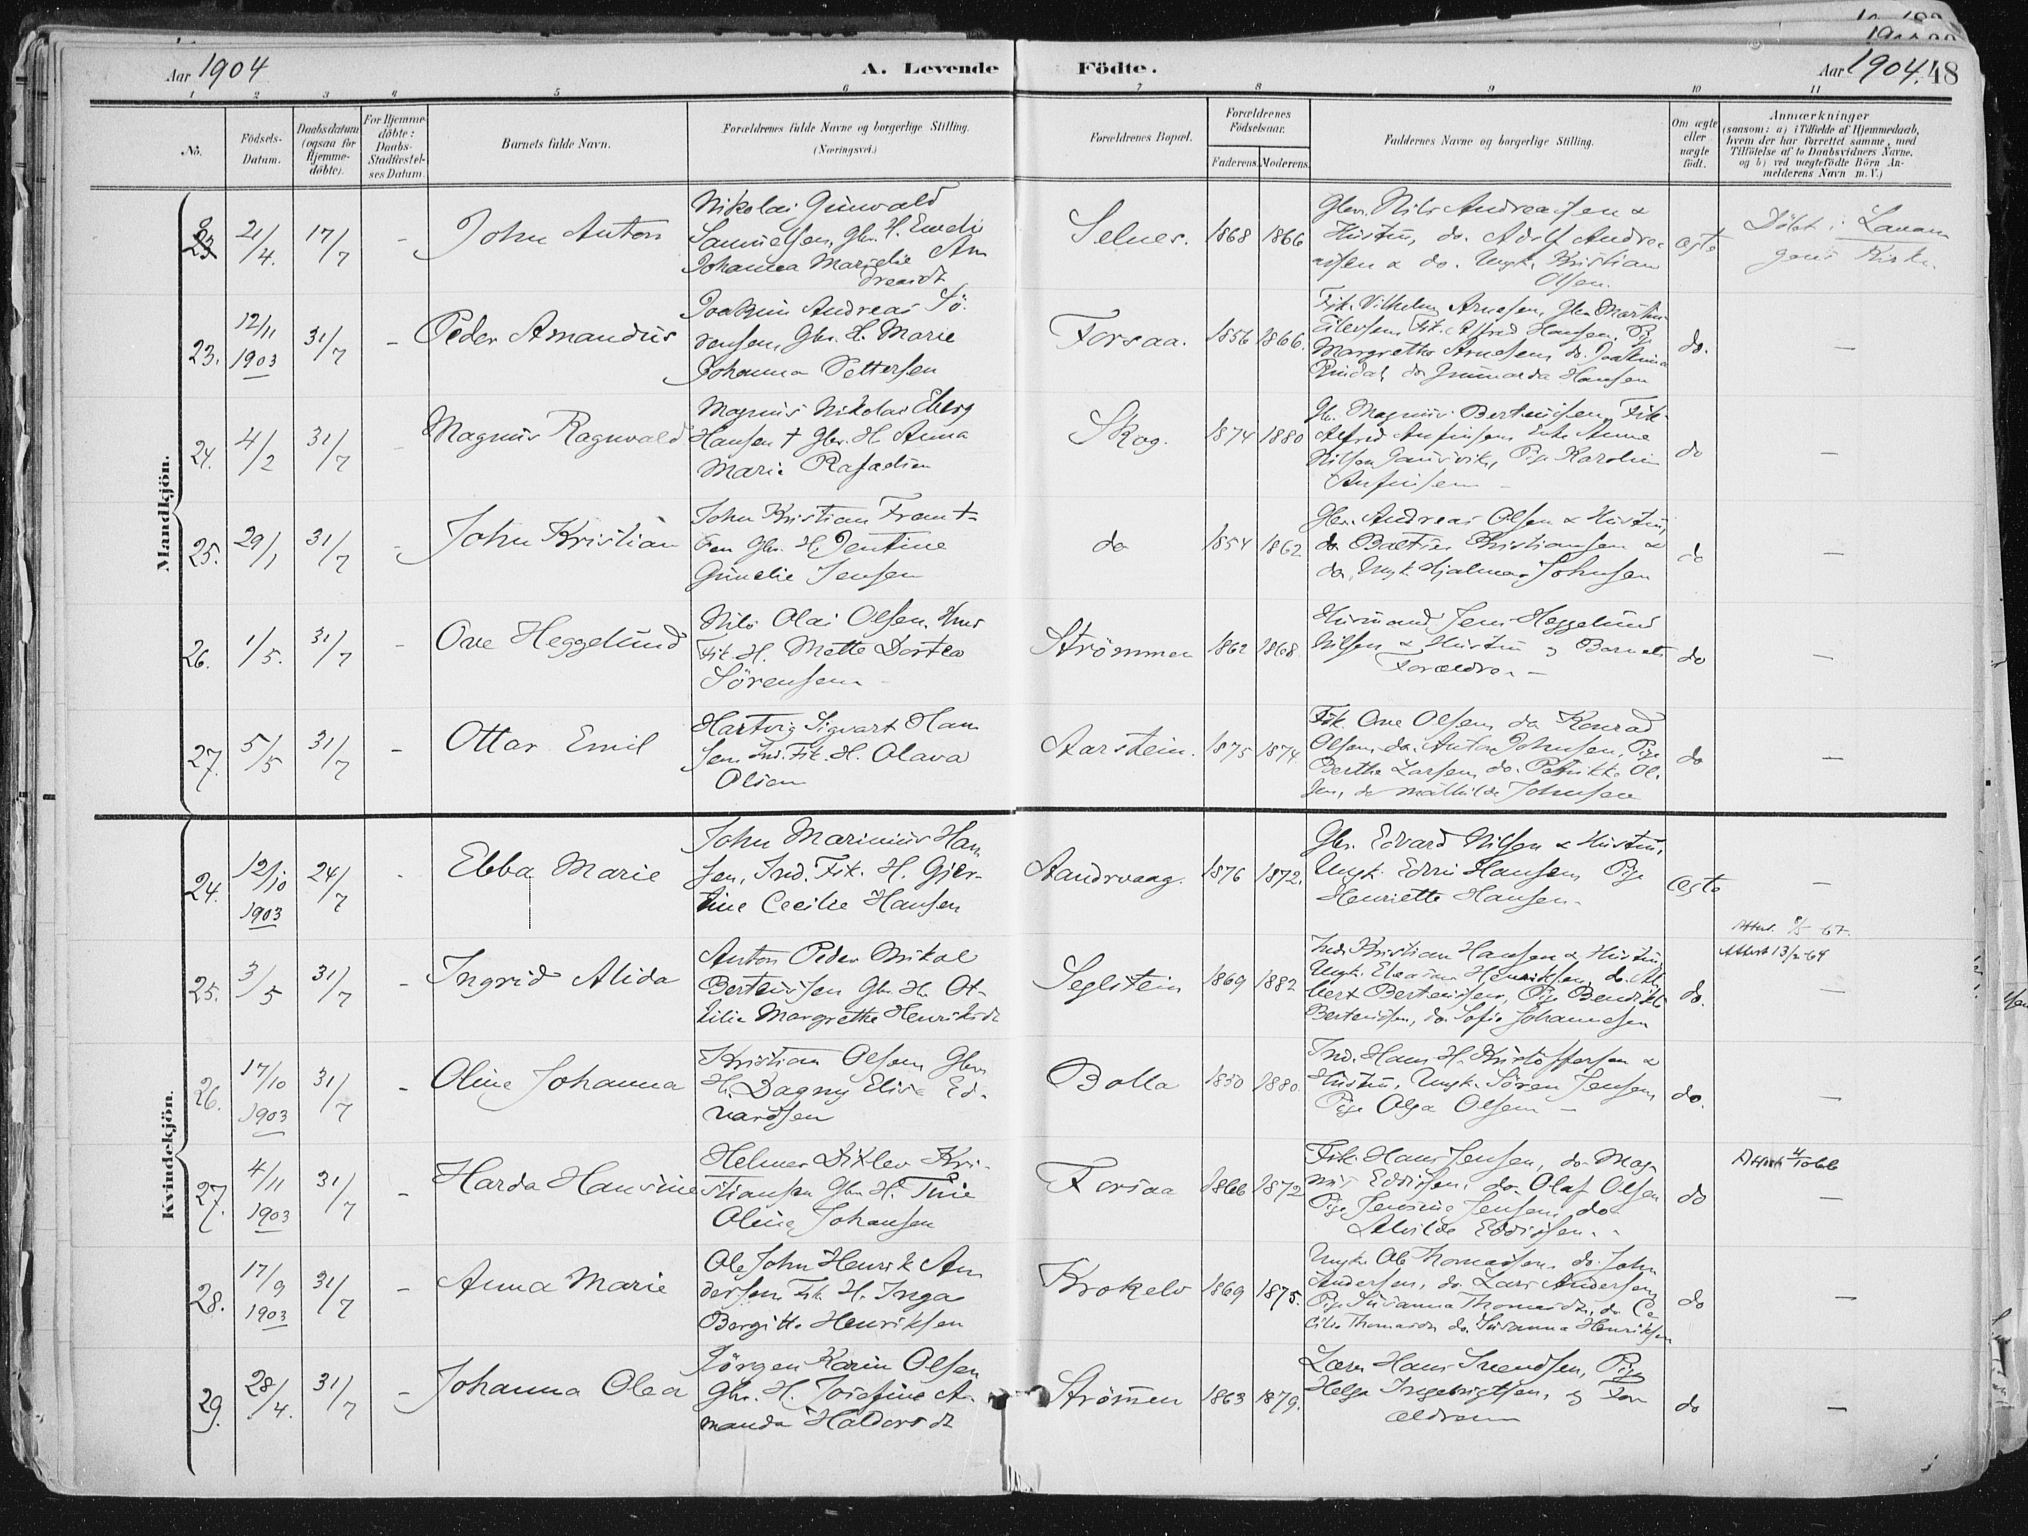 Aar 1904
A. Levende
Födte.
Aar 1904.
48
1 2 3 4 5 6 7 8 9 10 11
No.
Födsels-
Datum.
Daabsdatum
(ogsaa for
Hjemme-
döbte).
For Hjemme-
döbte:
Daabs-
Stadfæstel-
ses Datum.
Barnets fulde Navn.
Forældrenes fulde Navne og borgerlige Stilling.
(Næringsvei.)
Forældrenes Bopæl.
Forældrenes
Födselsaar.
Faderens.
Moderens.
Faddernes Navne og borgerlige Stilling.
Om ægte
eller
uægte
født.
Anmærkninger
(saasom: a) i Tilfælde af Hjemmedaab,
hvem der har forrettet samme, med
Tilföielse af to Daabsvidners Navne,
og b) ved uægtefödte Börn An-
melderens Navn m. V.)
Mandkjön.
21/4. 17/7 - John Anton
Nikolai Gunvald
Samuelsen, Gbr. H.
Johanna
Selnes. 1868 1866
Gbr. Nils Andreassen &
Hustru, do. Adolf Andre
assen & do. Ungk. Kristian
Olsen.
ægte
Døbt i Lavan
gens Kirke.
23. 12/11 1903 31/7 - Peder Amandus
Joakim Andreas Sö-
rensen, Gbr. H. Marie
Johanna Pettersen
Forsaa. 1856 1866.
Fik. Vilhelm Arnesen, Gbr. Martin
Eilersen, Fik. Alfred Hansen, Pig
Margrethe Arnesen, do.
do Hansen
do. —
24. 4/2 31/7 - Magnus Ragnvald
Magnus Nikolai Eberg
Hansen † Gbr. H. Anna
Marie
Skog. 1874 1880
Gb. Magnus Berteussen, Fik.
Alfred Anfinsen, Enke Anne
Nilsen Pige Karolin
Anfinsen -
do —
25. 29/1 31/7 - John Kristian
John Kristian
Gbr. H. Jentine
Jensen
do 1854 1862
Gbr. Andreas Olsen & Hustru,
do Kristiansen &
do, Ungk. Hjalmar Johnsen
do —
26. 1/5. 31/7 - Ove Heggelund
Nils Olai Olsen, Hus
Fik. H. Mette Dortea
Sörensen -
Strømmen 1862 1868
Husmand Jens Heggelund
Nilsen & Hustru og Barnets
Forældre. -
do —
27. 5/5 31/7 - Ottar Emil
Hartvig Sigvart Han
sen Ind. Fik. H. Olava
Olsen
Aarstein. 1875 1874.
Fik. Ove Olsen, do Konrad
Olsen, do. Anton Johnsen, Pige
Berthe Larsen, do. Petrikke Ol-
sen, do Mathilde Johnsen
do —
Kvindekjön.
24. 12/10 1903 24/7 - Ebba Marie
John Marinius Han
sen, Ind. Fik. H. Gjer-
tine Cecilie Hansen
Aandrvaag. 1876 1872.
Gbr. Edvard Nilsen & Hustru,
Ungk. Edvin Hansen, Pige
Henriette Hansen.
ægte —
25. 3/5 31/7 - Ingrid Alida
Anton Peder Nikol
Berteussen Gbr. H. Ot-
tilie Margrethe Henriksdt
Seglstein 1869 1882
Ind. Kristian Hansen & Hustru,
Ungk. Henriksen, do. Al
bert Berteussen, Pige Bendikte
Berteussen, do. Sofie Johannesen
do.
Attest 8/5 - 67.
Attest 13/2-64
—
26. 17/10 1903 31/7 - Oline Johanna
Kristian Olsen, Gbr.
H. Dagny Elise Ed-
vardsen
Bolla 1850 1880.
Ind. Hans H. Kristoffersen &
Hustru, Ungk. Sören Jensen,
Pige Olga Olsen -
do. —
27. 4/11 1903 31/7 - Harda Hansine
Helmer Ditlev Kri-
stiansen Gbr. H. Tine
Oline Johansen
Forsaa 1866 1872
Fik. Hans Jensen, do Mag-
nus Eddissen, do. Olaf Olsen
Pige Jensine Jensen, do
Alvilde Eddissen.
do
Attest 4/10 66
—
28. 17/9 1903 31/7 - Anna Marie
Ole John Henrik An
dersen Fik. H. Inga
Bergitte Henriksen
Krokelv 1869 1875.
Ungk. Ole Thomassen, do. John
Andersen, do. Lars Andersen,
Pige Susanna Thomasdt, do. Ce
cilie Thomasdt do. Susanna Henriksen
do —
29. 28/4. 31/7 - Johanna Olea
Jörgen Karin Olsen
Gbr. H. Josefine A-
manda Haldorsdt
Strømmen 1863 1879.
Lærer Hans Svendsen, Pige
Helga Ingebrigtsen, og For
ældrene
do —